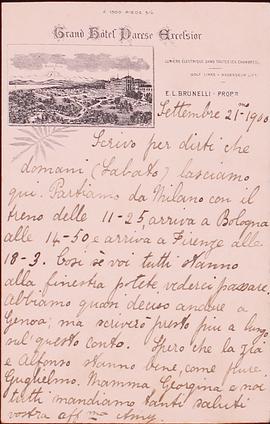 A 1300 PIEDS S/M
Grand Hôtel Varese Excelsior
LUMIÈRE ÉLECTRIQUE DANS TOUTES LES CHAMBRES.
GOLF LINKS - ASCENSEUR LIFT
E. L. BRUNELLI - PROPR
Settembre 21-mo 1900
Scrivo per dirti che
domani (Sabato) lasciamo
qui. Partiamo da Milano con il
treno delle 11-25, arriva a Bologna
alle 14-50, e arriva a Firenze alle
18-3. Così se voi tutti stanno
alla finestra potete vederci passare.
Abbiamo quasi deciso andare a
Genoa; ma scriverò presto piu a lungo
sul questo conto. Spero che la Zia
e Alfonso stanno bene, come pure
Guglielmo. Mamma Georgina e noi
tutti mandiamo tanti saluti
vostra aff-ma Amy.